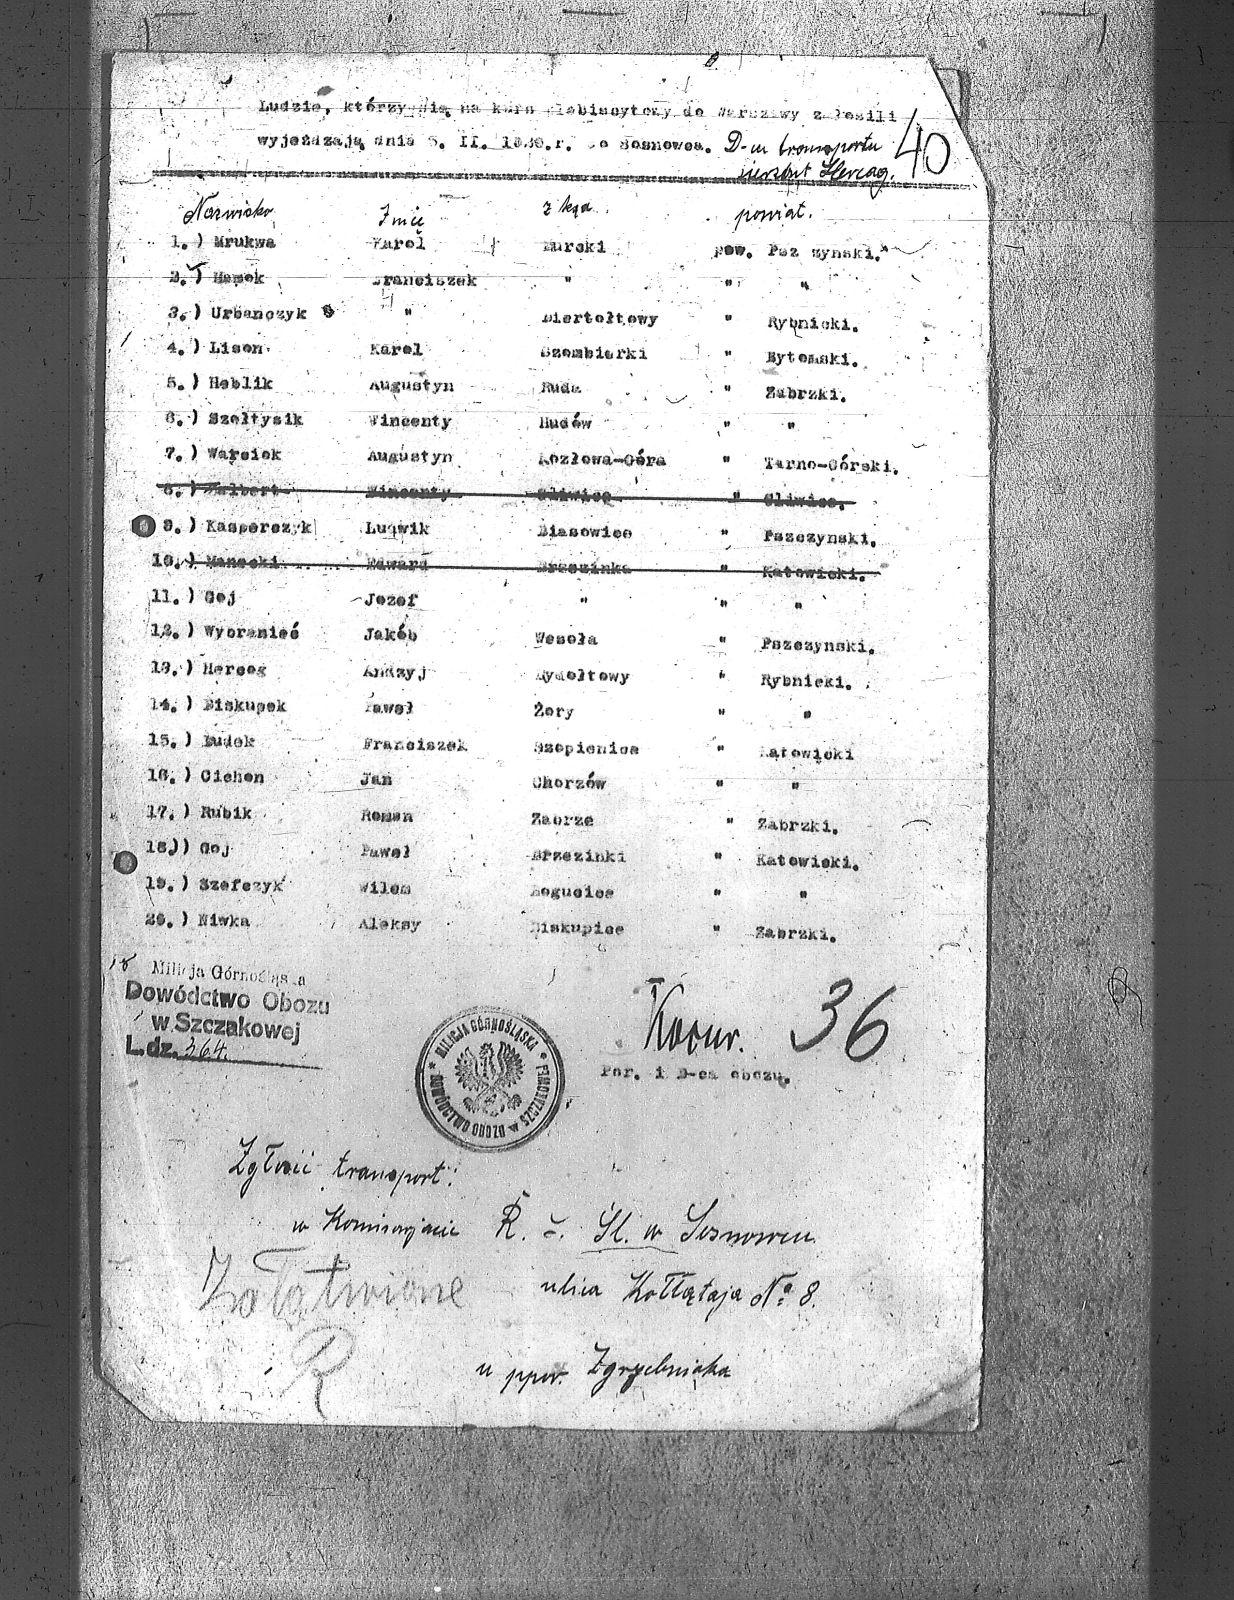 Ludzie, którzy się na kurs plebiscytowy do Warszawy zgłosili
wyjeżdzają dnia 5. II. 1920.r. do Sosnowca. D-ca transportu
sierżant Herzog. 40
Nazwisko Imię z kąd powiat.
1.) Mrukwa Karol Murcki pow. Pszczynski.
2.) Franciszek " " "
3.) Urbańczyk " Biertołtowy " Rybnicki.
4.) Lison Karol Szombierki " Bytomski.
5.) Heblik Augustyn Ruda " Zabrzki.
6.) Szołtysik Wincenty Rudów " "
7.) Warciok Augustyn Kozłowa-Góra " Tarno-Górski.
8.) Wincenty Gliwice " Gliwice.
9.) Kasperczyk Ludwik Biasowice " Pszczynski.
10.) Manecki Edward Brzezinka " Katowicki.
11.) Goj Jozef " " "
12.) Wybranieć Jakób Wesoła " Pszczynski.
13.) Herzog Andzyj Rydołtowy " Rybnicki.
14.) Biskupek Paweł Żory " "
15.) Dudek Franciszek Szopienice " Katowicki
16.) Cichon Jan Chorzów " "
17.) Rubik Roman Zabrze " Zabrzki.
18.) Goj Paweł Brzezinki " Katowicki.
19.) Szefczyk Wilem Bogucice " "
20.) Niwka Aleksy Biskupice " Zabrzki.
18 Milicja Górnośląska
Dowództwo Obozu
w Szczakowej
L. dz. 364.
MILICJA GÓRNOŚLĄSKA * DOWÓDCTWO OBOZU w SZCZAKOWEJ *
Kocur. 36
Por. i D-ca obozu.
Zgłosić transport:
w Komisarjacie R. č. Śl. w Sosnowcu
ulica Kołłątaja No 8.
Załatwione
u ppor. Zgrzebnioka
R